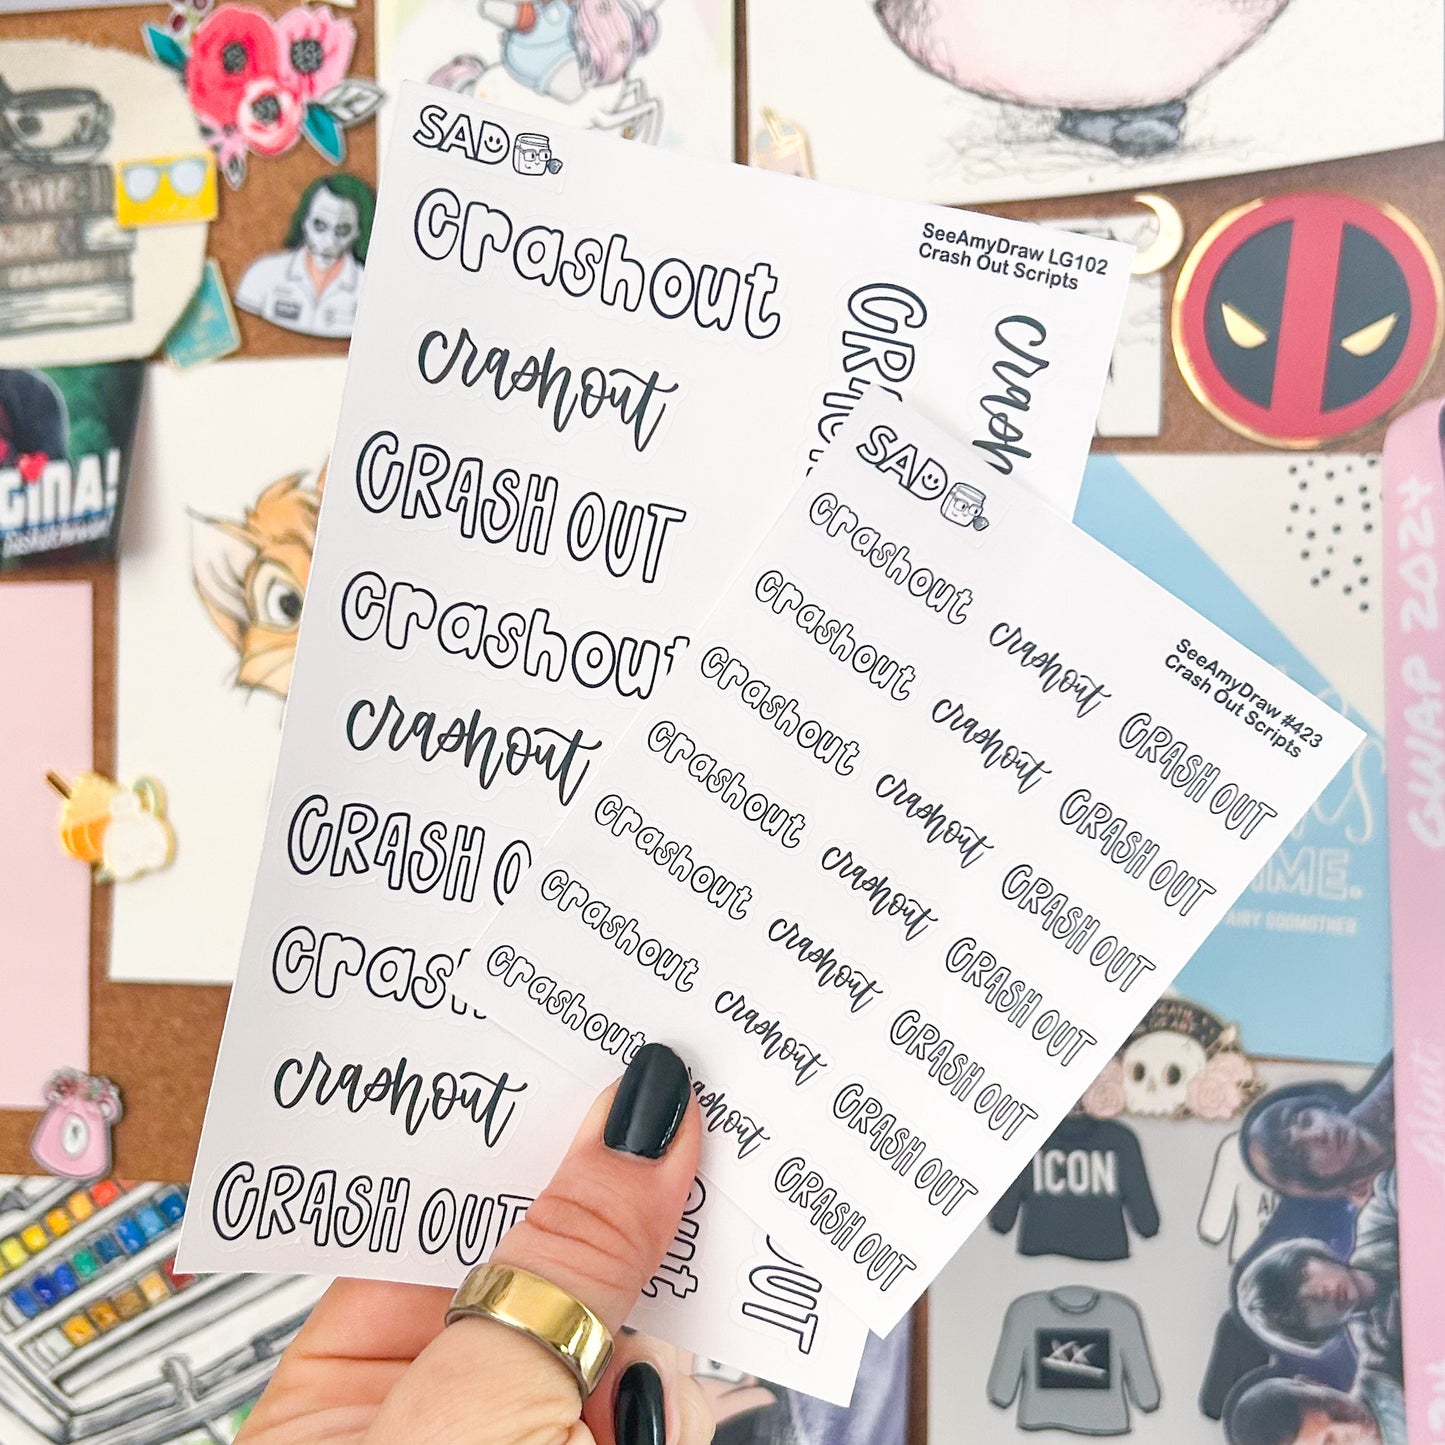 SAD
SeeAmyDraw LG102
Crash Out Scripts
crashout
crashout
CRASH OUT
crashout
crashout
CRASH O
crash
crashout
CRASH OUT
CR
crash
out
OUT
SAD
SeeAmyDraw #423
Crash Out Scripts
crashout crashout CRASH OUT
crashout crashout CRASH OUT
crashout crashout CRASH OUT
crashout crashout CRASH OUT
crashout crashout CRASH OUT
crashout crashout CRASH OUT
crashout crashout CRASH OUT
GINA!
GWAP 2024
IME.
FAIRY GODMOTHER
ICON
XX